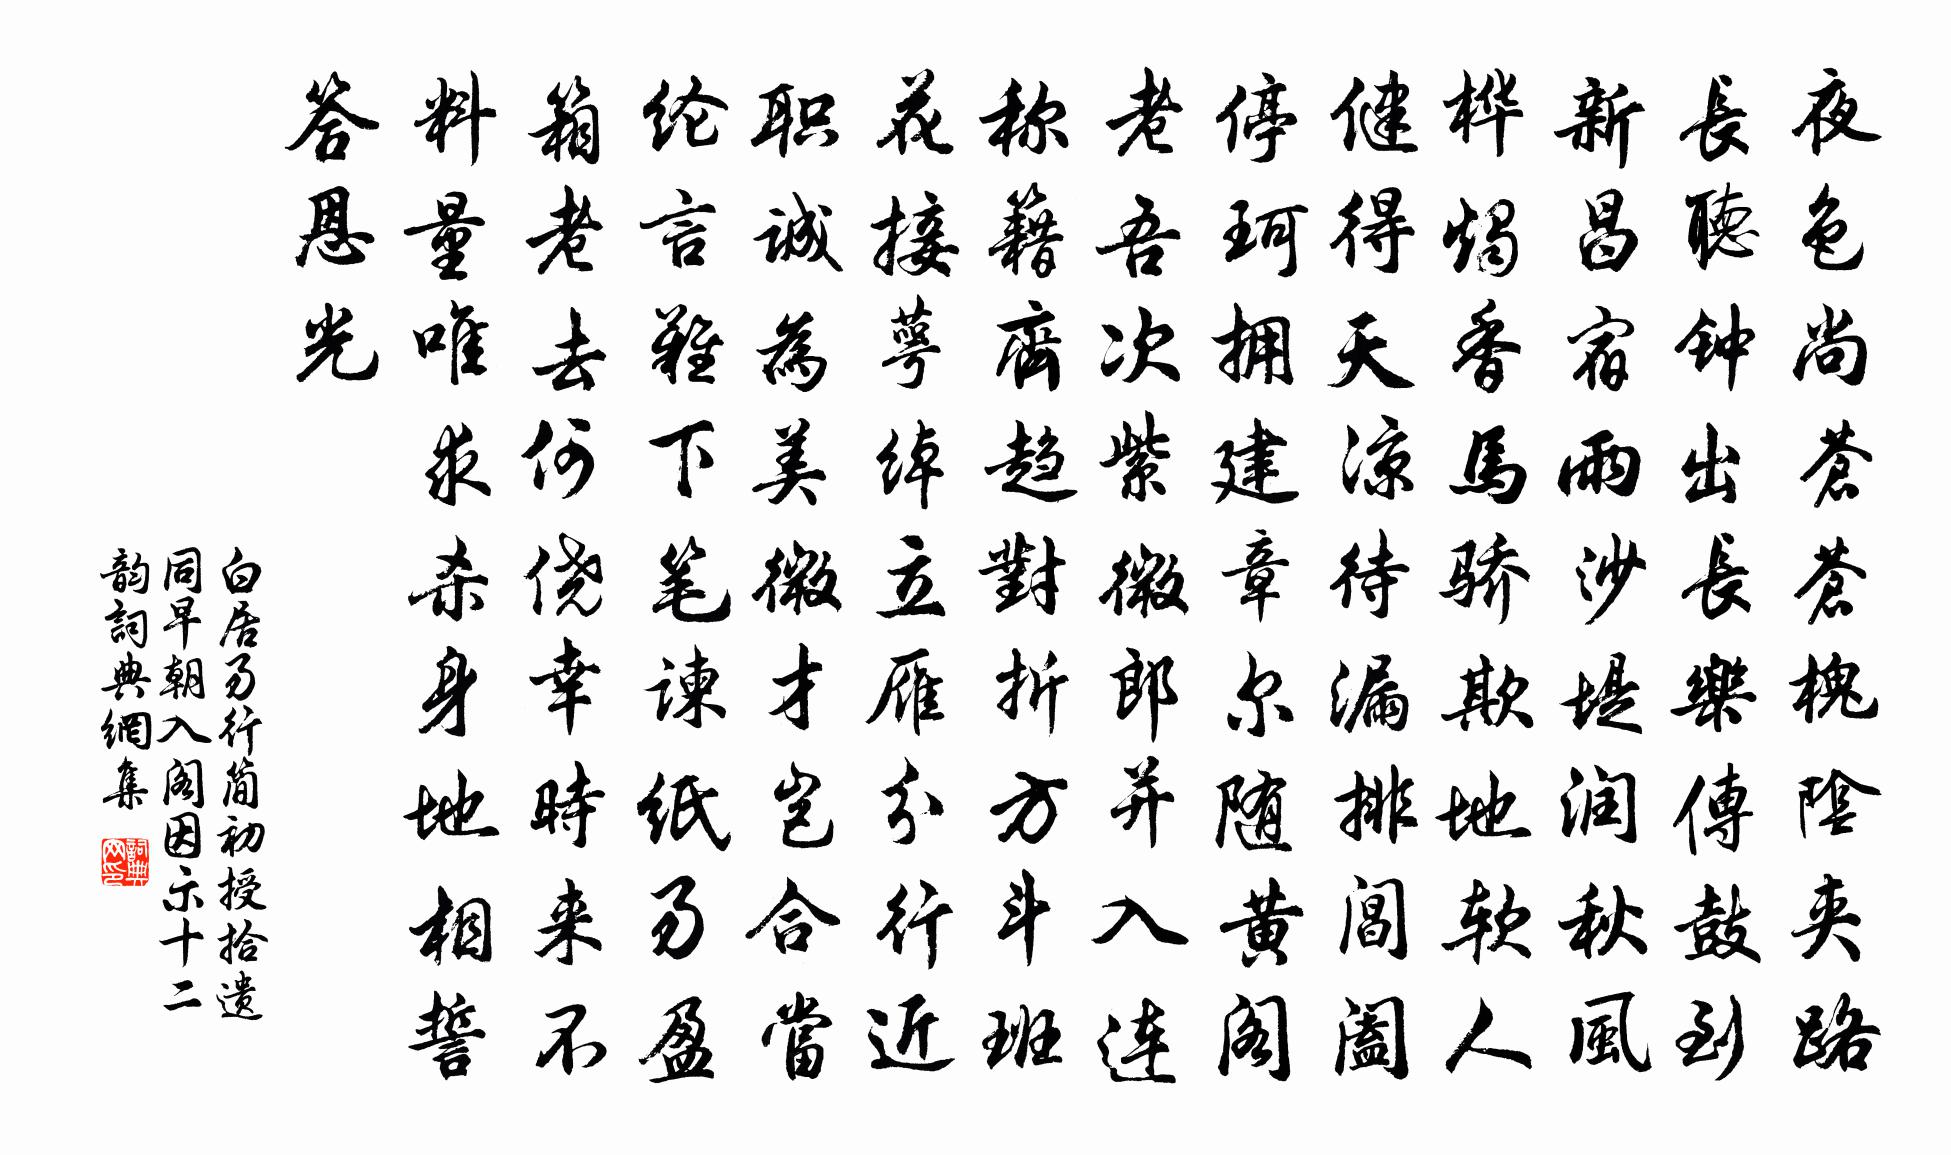 夜色尚苍苍槐陰夹路
長聴钟出長樂傳鼓到
新昌宿雨沙堤润秋風
桦燭香馬骄欺地软人
健得天凉待漏排閶阖
停珂拥建章尔随黄阁
老吾次紫微郎并入连
称籍齊趋對折方斗班
花接萼绰立雁分行近
职诚為美微才岂合當
纶言難下笔谏纸易盈
箱老去何侥幸時来不
料量唯求杀身地相誓
答恩光
白居易行简初授拾遗
同早朝入阁因示十二
韵詞典網集
詞典网印